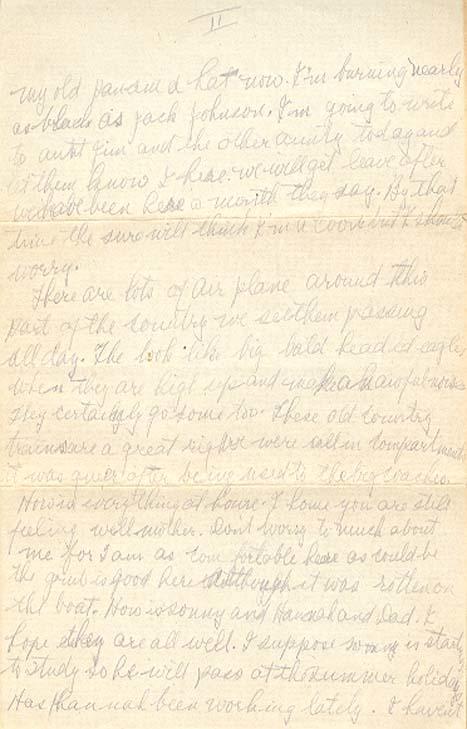 II
my old panama hat now. I'm burning nearly
as black as Jack Johnson. I'm going to write
to aunt Jim and the other aunty today and
let them know I here. we will get leave after
we have been here a month they say. By that
time the sure will think I'm a coon but I should
worry.
There are lots of air plane around this
part of the country we see them passing
all day. The look like big bald headed eagles
when they are high up and make an awful noise
They certainly go some too. These old country
trains are a great sight were all in compartments
it was queer after being used to the big coaches.
How is everything at home. I hope you are still
feeling well mother. Dont worry to much about
me for I am as comfortable here as could be
the grub is good here although it was rotten on
the boat. How is sonny and Hannah and Dad. I
hope they are all well. I suppose sonny is starting
to study so he will pass at the summer holidays
Has Hannah been working lately. I havent